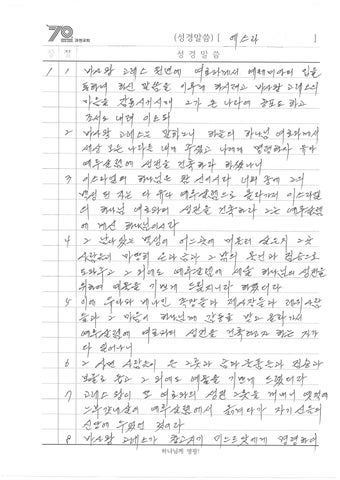 70 과천교회 (성경말씀) [ 에스라 ]
장 절 성 경 말 씀
1 1 바사왕 고레스 원년에 여호와께서 예레미야의 입을
통하여 하신 말씀을 이루게 하시려고 바사왕 고레스의
마음을 감동시키시매 그가 온 나라에 공포도 하고
조서도 내려 이르되
2 바사왕 고레스는 말하노니 하늘의 하나님 여호와께서
세상 모든 나라를 내게 주셨고 나에게 명령하사 유다
예루살렘에 성전을 건축하라 하셨나니
3 이스라엘의 하나님은 참 신이시라 너희 중에 그의
백성 된 자는 다 유다 예루살렘으로 올라가서 이스라엘
의 하나님 여호와의 성전을 건축하라 그는 예루살렘
에 계신 하나님이시라
4 그 남아있는 백성이 어느 곳에 머물러 살든지 그 곳
사람들이 마땅히 은과 금과 그 밖의 물건과 짐승으로
도와주고 그 외에도 예루살렘에 세울 하나님의 성전을
위하여 예물을 기쁘게 드릴지니라 하였더라
5 이에 유다와 베냐민 족장들과 제사장들과 레위 사람
들과 그 마음이 하나님께 감동을 받고 올라가서
예루살렘에 여호와의 성전을 건축하고자 하는 자가
다 일어나니
6 그 사면 사람들이 은 그릇과 금과 물품들과 짐승과
보물로 돕고 그 외에도 예물을 기쁘게 드렸더라
7 고레스 왕이 또 여호와의 성전 그릇을 꺼내니 옛적에
느부갓네살이 예루살렘에서 옮겨다가 자기 신들의
신당에 두었던 것이라
8 바사왕 고레스가 창고지기 미드르닷에게 명령하여
하나님께 영광!